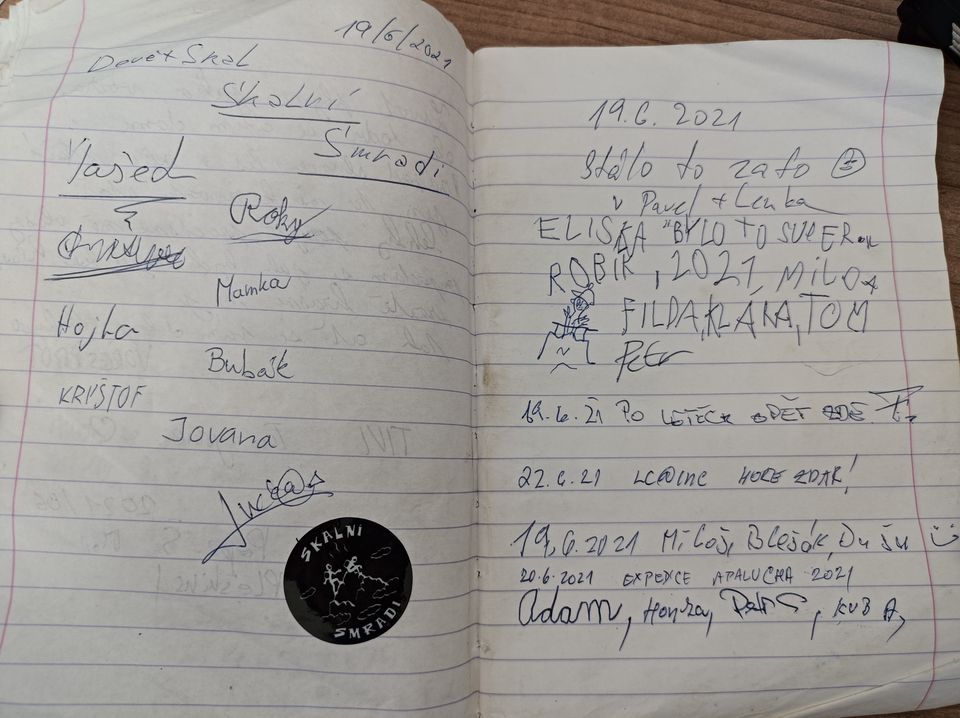 19/6/2021
Devět Skal
Skalní
Smradi
Vašed
Roky
Mamka
Hojka
Bubák
KRYŠTOF
Jovana
SKALNI
SMRADI
19.6. 2021
Stálo to zato
Pavel + Lenka
ELISKA "BYLO TO SUPER"
ROBIK, 2021, MILOŠ
FILDA, KLÁRA, TOM
Petr
19.6.21 PO LETECH OPĚT ZDE.
22.6.21 HORE ZDAR!
19.6.2021 Miloš, Blešák, Dušu
20.6.2021 EXPEDICE APALUCHA 2021
Adam, Honza, KUBA,